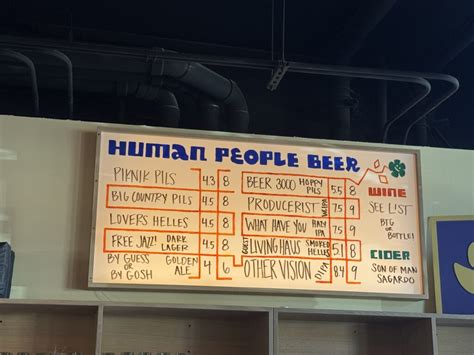 HUMAN PEOPLE BEER
PIKNIK PILS 4.3 8
BIG COUNTRY PILS 4.5 8
LOVERS HELLES 4.5 8
FREE JAZZ! DARK LAGER 4.5 8
BY GUESS or BY GOSH GOLDEN ALE 4 6
BEER 3000 HOPPY PILS 5.5 8
PRODUCERIST WC IPA 7.5 9
WHAT HAVE YOU HAZY IPA 7.5 9
GUEST LIVING HAUS SMOKED HELLES 5.1 8
OTHER VISION DIPA 8.4 9
WINE
SEE LIST
BTG
OR
BOTTLE!
CIDER
SON OF MAN
SAGARDO